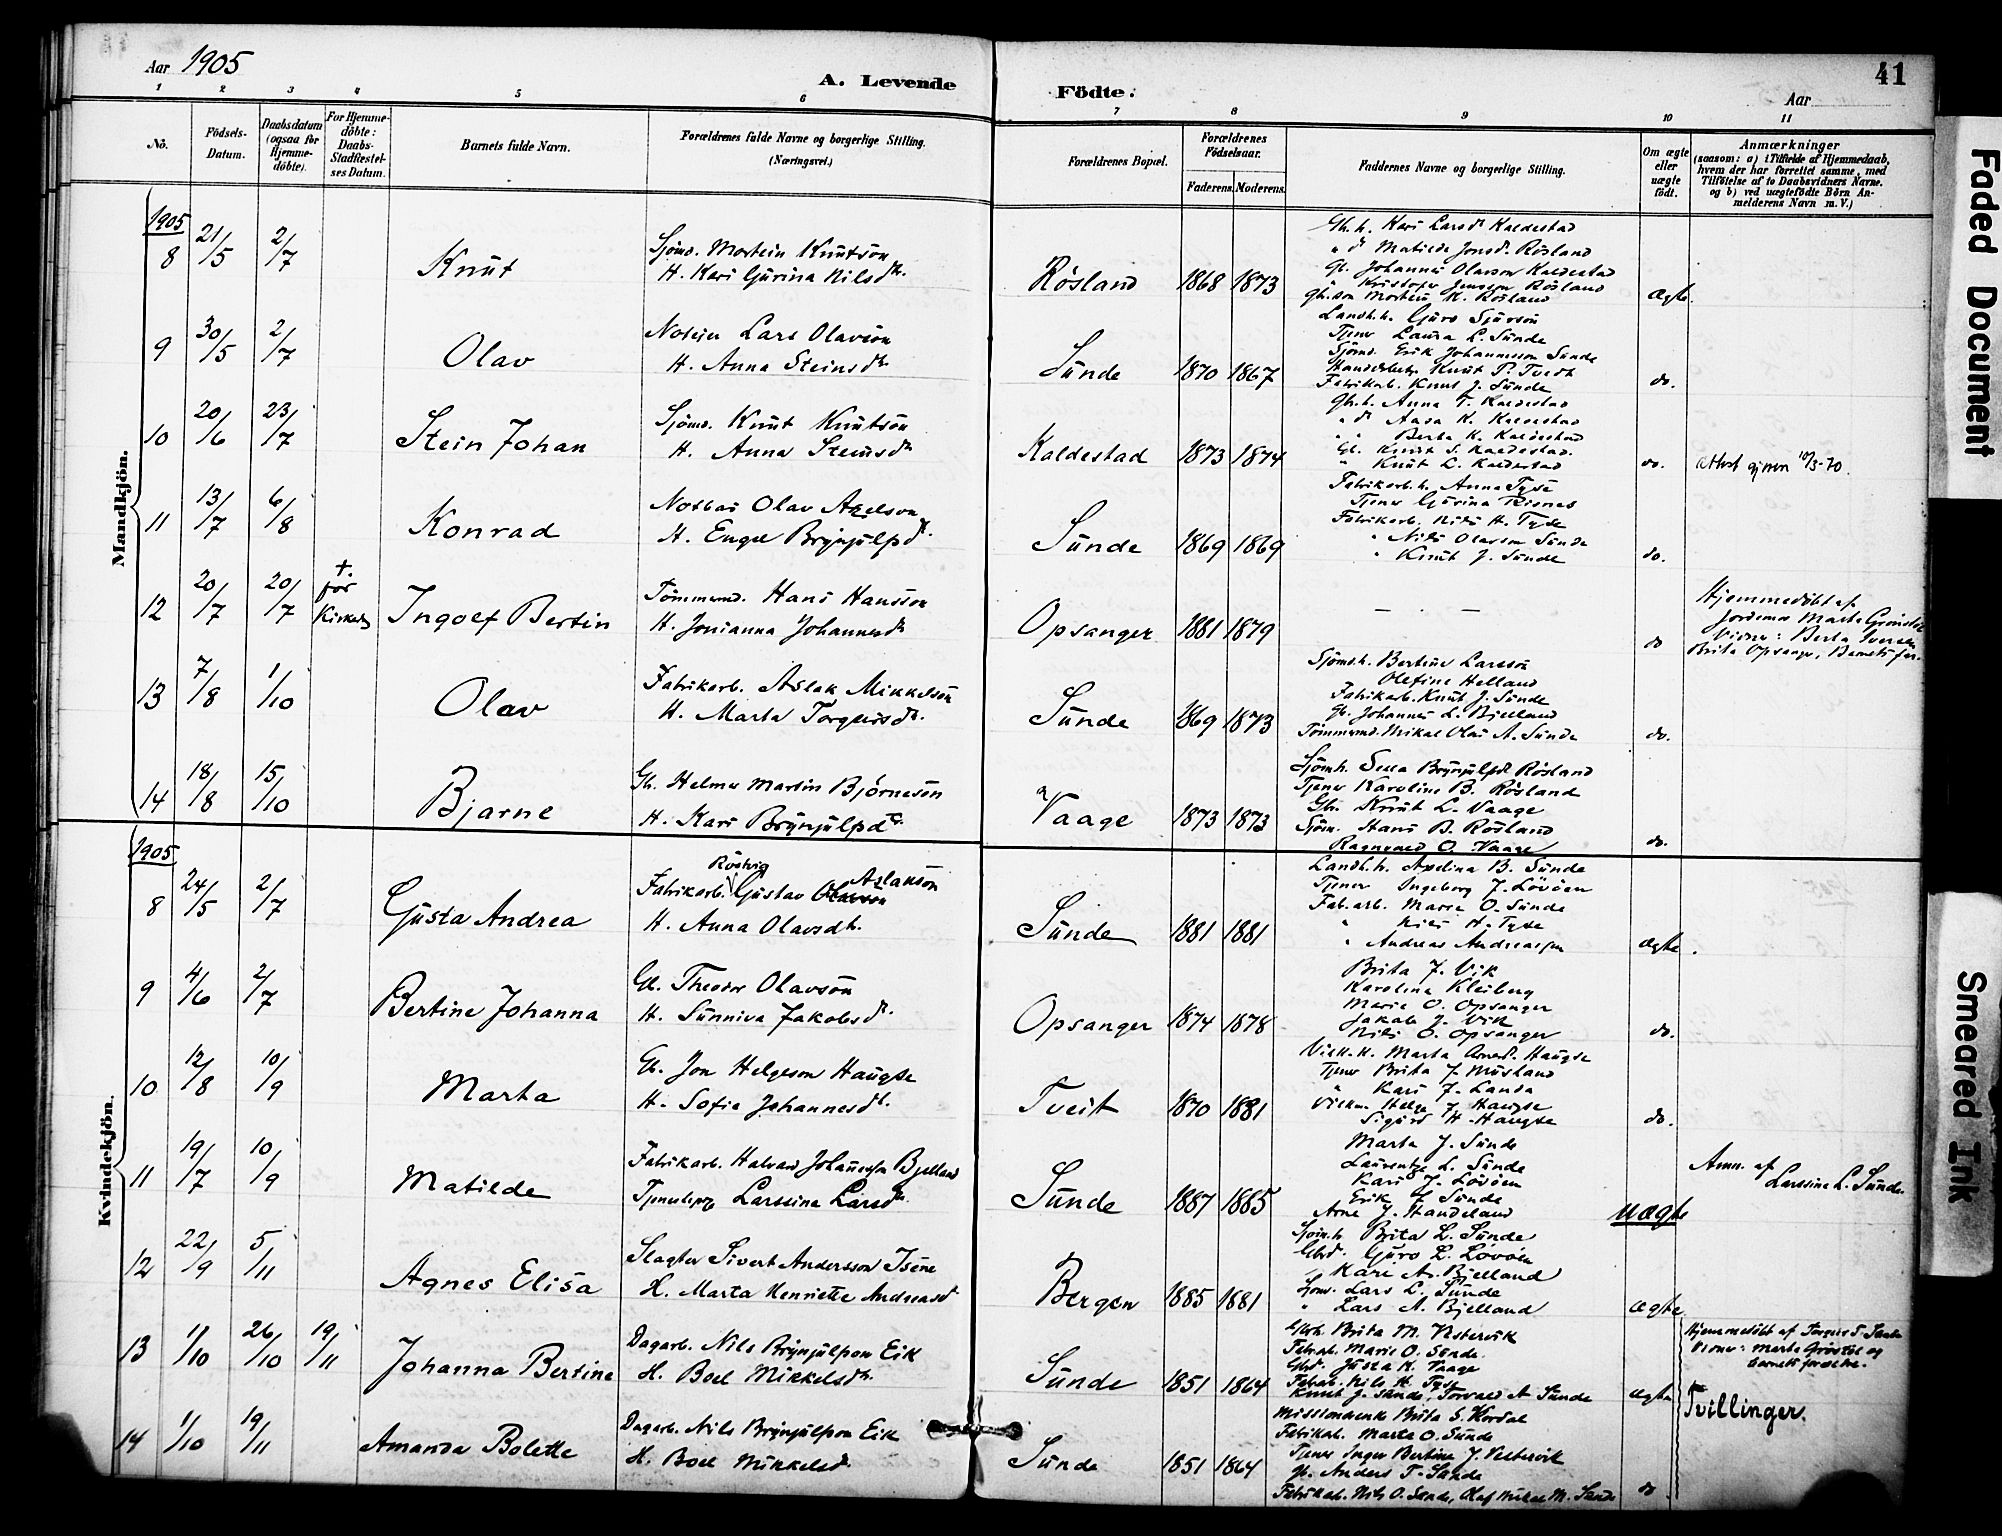 Aar 1905
A. Levende
Födte.
Aar
41
1 2 3 4 5 6 7 8 9 10 11
No.
Födsels-Datum.
Daabsdatum (ogsaa for Hjemme-döbte).
For Hjemme-döbte: Daabs-Stadfæstel-ses Datum.
Barnets fulde Navn.
Forældrenes fulde Navne og borgerlige Stilling. (Næringsvei.)
Forældrenes Bopæl.
Forældrenes Födselsaar.
Faderens. Moderens.
Faddernes Navne og borgerlige Stilling.
Om ægte eller uægte födt.
Anmærkninger
(saasom: a) i Tilfælde af Hjemmedaab, hvem der har forrettet samme, med Tilföielse af to Daabsvidners Navne. og b) ved uægtefödte Börn Anmelderens Navn m. V.)
Mandkjön.
1905
8 21/5 2/7 Knut
Sjömd. Mortein Knutsön
H. Kari Gurina Nilsdtr.
Rösland 1868 1873
Gh.h. Kari Larsdr Kaldestad
" dr Matilde Jonsdr. Rösland
Gb. Johannes Olavson Kaldestad
Gbr.sön Mortein K. Rösland
ægte.
9 30/5 2/7 Olav
Lars Olavsön
H. Anna Steinsdtr
Sunde 1870 1867
Landh.h. Guro Sjursön
Tjener Laura L. Sunde
Sjömd. Erik Johannesson Sunde
Knut P. Tvedt
Fabrikarb. Knut J. Sunde
do.
10 20/6 23/7 Stein Johan
Sjömd. Knut Knutsön
H. Anna Steinsdtr
Kaldestad 1873 1874
Gb.h. Anna T. Kaldestad
" dr Aasa K. Kaldestad
" " Berta K. Kaldestad
Gb. Knut S. Kaldestad.
" Knut L. Kaldestad
do.
Attest given 10/3-70.
11 13/7 6/8 Konrad
Notbas Olav Axelson
H. Engel Brynjulfsdtr.
Sunde 1869 1869
Fabrikarb.h. Anna Tyse
Tjener Gurina
Fabrikarb. Nils H. Tyse
" Nils Olavson Sunde
" Knut J. Sunde
do.
12 20/7 20/7 +. før Kirked. Ingolf Bertin
Tömmermd. Hans Hansson
H. Jonianna Johannesdtr
Opsanger 1881 1879
— — —
do
Hjemmedöbt af
Jordemor Marta Grimstöl
Vidner: Berta Iversen
Brita Opsanger, Barnets far.
13 7/8 1/10 Olav
Fabrikarb. Aslak Mikkelsön
H. Marta Torgersdtr.
Sunde 1869 1873
Sjömd.h. Bertine Larsson
Olefine Helland
Fabrikarb. Knut J. Sunde
Gb. Johannes L. Bjelland
Tömmermd. Mikal Olai A. Sunde
do.
14 18/8 15/10 Bjarne
Gb. Helmer Martin Björnesön
H. Kari Brynjulfsdtr.
Vaage 1873 1873
Sjömh. Sena Brynjulfsdr Rösland
Tjener Karoline B. Rösland
Gb. Knut L. Vaage
Sjöm. Hans B. Rösland
Ragnvald O. Vaage
do.
Kvindekjön.
1905
8 24/5 2/7 Gusta Andrea
Rödvig Aslakson
Fabrikarb. Gustav Olavson
H. Anna Olavsdtr.
Sunde 1881 1881
Landh.h. Axelina B. Sunde
Tjener Ingeborg J. Lövöen
Fab.arb. Marta O. Sunde
" Nils H. Tyse
" Andreas Andreassen
ægte.
9 4/6 2/7 Bertine Johanna
Gb. Theodor Olavsön
H. Sunniva Jakobsdtr.
Opsanger 1874 1878
Brita J. Vik
Karolina Kleiberg
Marie O. Opsanger
Jakob J. Vik
Nils O. Opsanger
do.
10 12/8 10/9 Marta
Gb. Jon Helgeson Haugse
H. Sofie Johannesdtr.
Tveit 1870 1881
Marta Haugse
Tjener Brita J. Musland
" Kari J. Landa
Helge J. Haugse
Sigurd H. Haugse
do.
11 19/7 10/9 Matilde
Fabrikarb. Halvard Johannessen Bjelland
Tjenestepige Larssine Larsdtr.
Sunde 1887 1885
Marta J. Sunde
Laurentze L. Sunde
Kari J. Lövöen
Erik J. Sunde
Arne J. Handeland
uægte
Anm. af
Larssine L. Sunde.
12 22/9 5/11 Agnes Elisa
Slagter Sivert Andersson Isene
H. Marta Henriette Andreasdr
Bergen 1885 1881
Sjömh. Brita L. Sunde
Gbrd. Guro L. Lövöen
" Kari A. Bjelland
Sjömd. Lars L. Sunde
" Lars A. Bjelland
ægte
13 1/10 26/10 19/11 Johanna Bertine
Dagarb. Nils Brynjulfson Eik
H. Boel Mikkelsdtr.
Sunde 1851 1864
Gbrh. Brita M. Vestervik
Fabrab. Marie O. Sunde.
Gbd. Gusta K. Vaage
Fabrab. Nils H. Tyse
Knut J. Sunde, Torvald A Sunde
ægte
Hjemmedöbt af Torger T. Sunde
Vidner: Marta Grimstöl og
barnets forældre.
Tvillinger.
14 1/10 19/11 Amanda Bolette
Dagarb. Nils Brynjulfson Eik
H. Boel Mikkelsdr
Sunde 1851 1864
Brita S. Hordal
Fabrikab. Marta O. Sunde
Tjener Inger Bertine J. Vestervik
Gb. Anders T. Sunde
Fabrikab. Nils O. Sunde, Olaf Mikal M. Sunde
do.
Faded Document
Smeared Ink